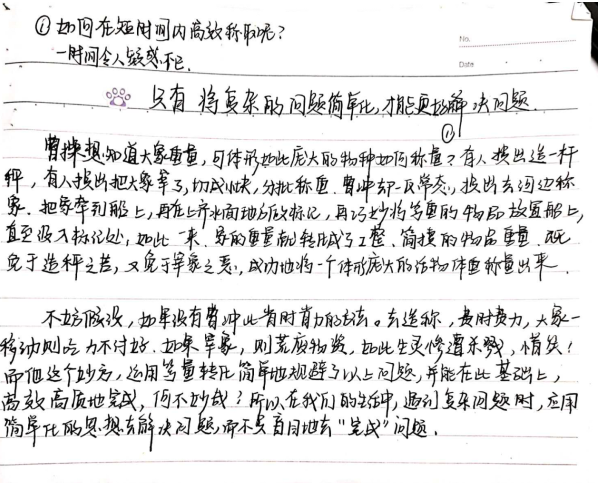 ① 如何在短时间内高效称取呢?
No.
一时间令人疑惑不已.
Date
只有 将复杂的问题简单化,才能更好解决问题.
①
曹操想知道大象重量,可体形如此庞大的物种如何称量?有人提出造一杆
秤,有人提出把大象宰了,切成小块,分批称重.曹冲却一反常态,提出去河边称
象.把象牵到船上,再在上齐水面地方做标记,再巧妙将等重的物品放置船上,
直至没入标记处,如此一来.象的重量就转化成了工整、简接的物品重量.既
免于造秤之苦,又免于宰象之恶,成功地将一个体形庞大的活物体重称量出来.
不妨假设,如果没有曹冲此省时省力的方法。去造称,费时费力,大象一
移动则吃力不讨好.如果宰象,则荒废物资,如此生灵惨遭杀戮,惜矣!
而他这个妙方,运用等量转化简单地规避了以上问题,并能在此基础上,
高效高质地完成,何不妙哉?所以在我们的生活中,遇到复杂问题时,应用
简单化的思想去解决问题,而不要盲目地去“完成”问题.